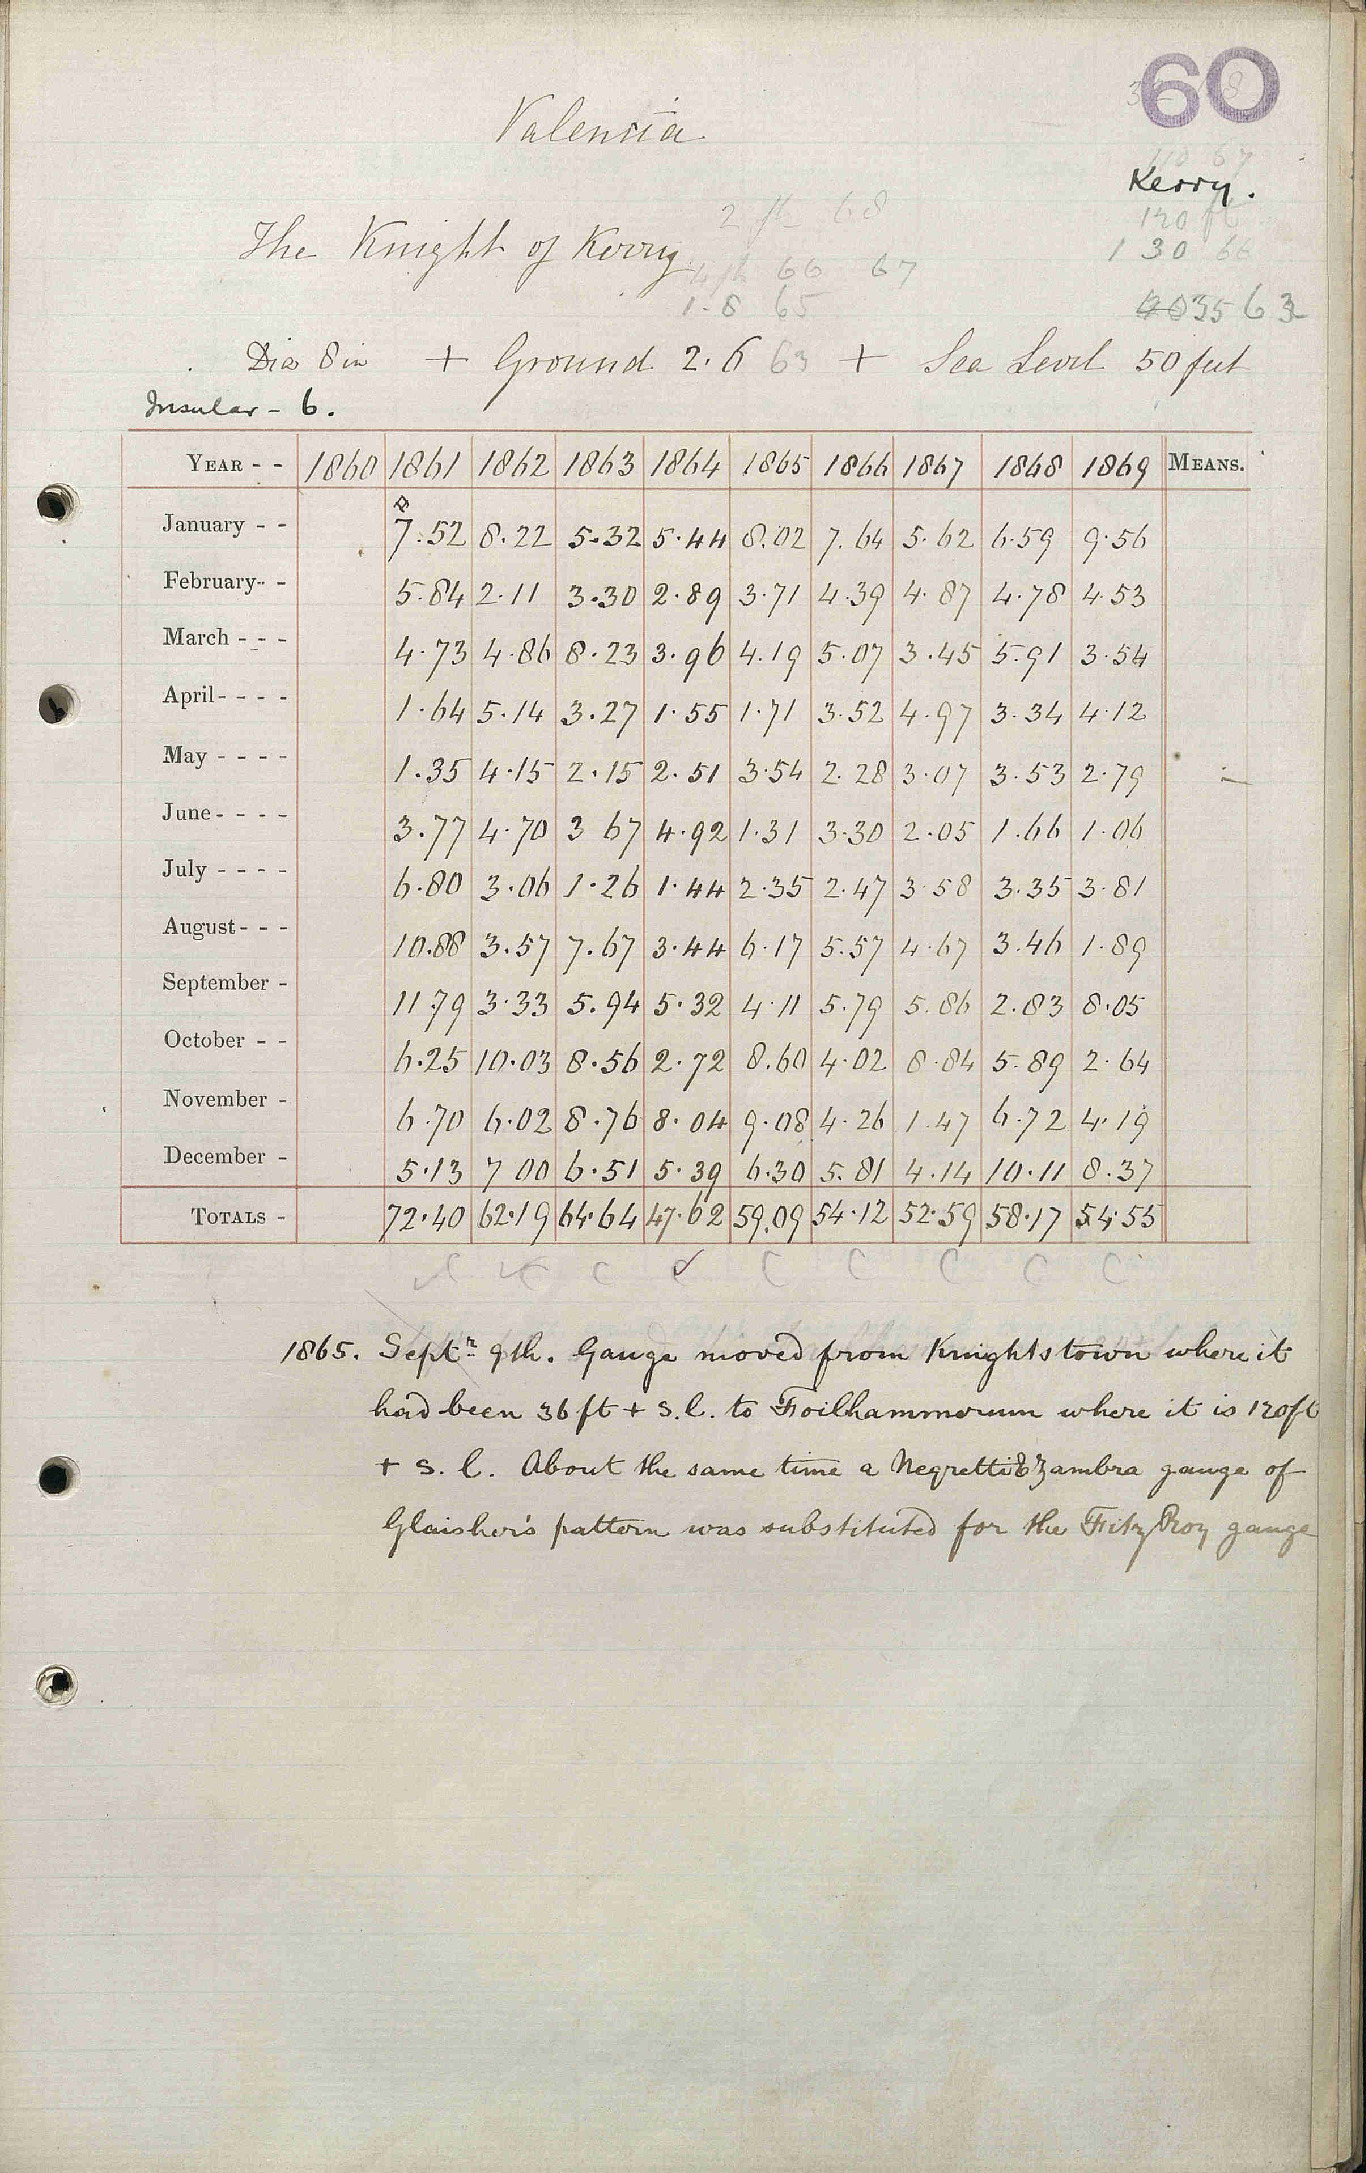 60
Valencia
Kerry.
2 ft 68
120 ft
The Knight of Kerry
1 30 66
4 ft 66 67
1.8 65
35 63
Dia 8 in + Ground 2.6 63 + Sea Level 50 feet
Insular - 6.
YEAR - - 1860 1861 1862 1863 1864 1865 1866 1867 1868 1869 MEANS.
January - - 7.52 8.22 5.32 5.44 8.02 7.64 5.62 6.59 9.56
February - - 5.84 2.11 3.30 2.89 3.71 4.39 4.87 4.78 4.53
March - - - 4.73 4.86 8.23 3.96 4.19 5.07 3.45 5.91 3.54
April - - - - 1.64 5.14 3.27 1.55 1.71 3.52 4.97 3.34 4.12
May - - - - 1.35 4.15 2.15 2.51 3.54 2.28 3.07 3.53 2.79
June - - - - 3.77 4.70 3 67 4.92 1.31 3.30 2.05 1.66 1.06
July - - - - 6.80 3.06 1.26 1.44 2.35 2.47 3.58 3.35 3.81
August - - - 10.88 3.57 7.67 3.44 6.17 5.57 4.67 3.46 1.89
September - 11.79 3.33 5.94 5.32 4.11 5.79 5.86 2.83 8.05
October - - 6.25 10.03 8.56 2.72 8.60 4.02 8.84 5.89 2.64
November - 6.70 6.02 8.76 8.04 9.08 4.26 1.47 6.72 4.19
December - 5.13 7 00 6.51 5.39 6.30 5.81 4.14 10.11 8.37
TOTALS - 72.40 62.19 64.64 47.62 59.09 54.12 52.59 58.17 54.55
C C C C C C C C
1865. Septr 9th. Gauge moved from Knightstown where it
had been 36 ft + s.l. to Foilhammerum where it is 120 ft
+ s.l. About the same time a Negretti & Zambra gauge of
Glaisher's pattern was substituted for the FitzRoy gauge